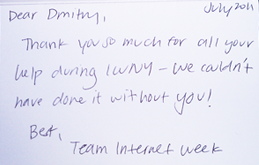 Dear Dmitry,
July 2011
Thank you so much for all your
help during IWNY - we couldn't
have done it without you!
Best,
Team Internet Week